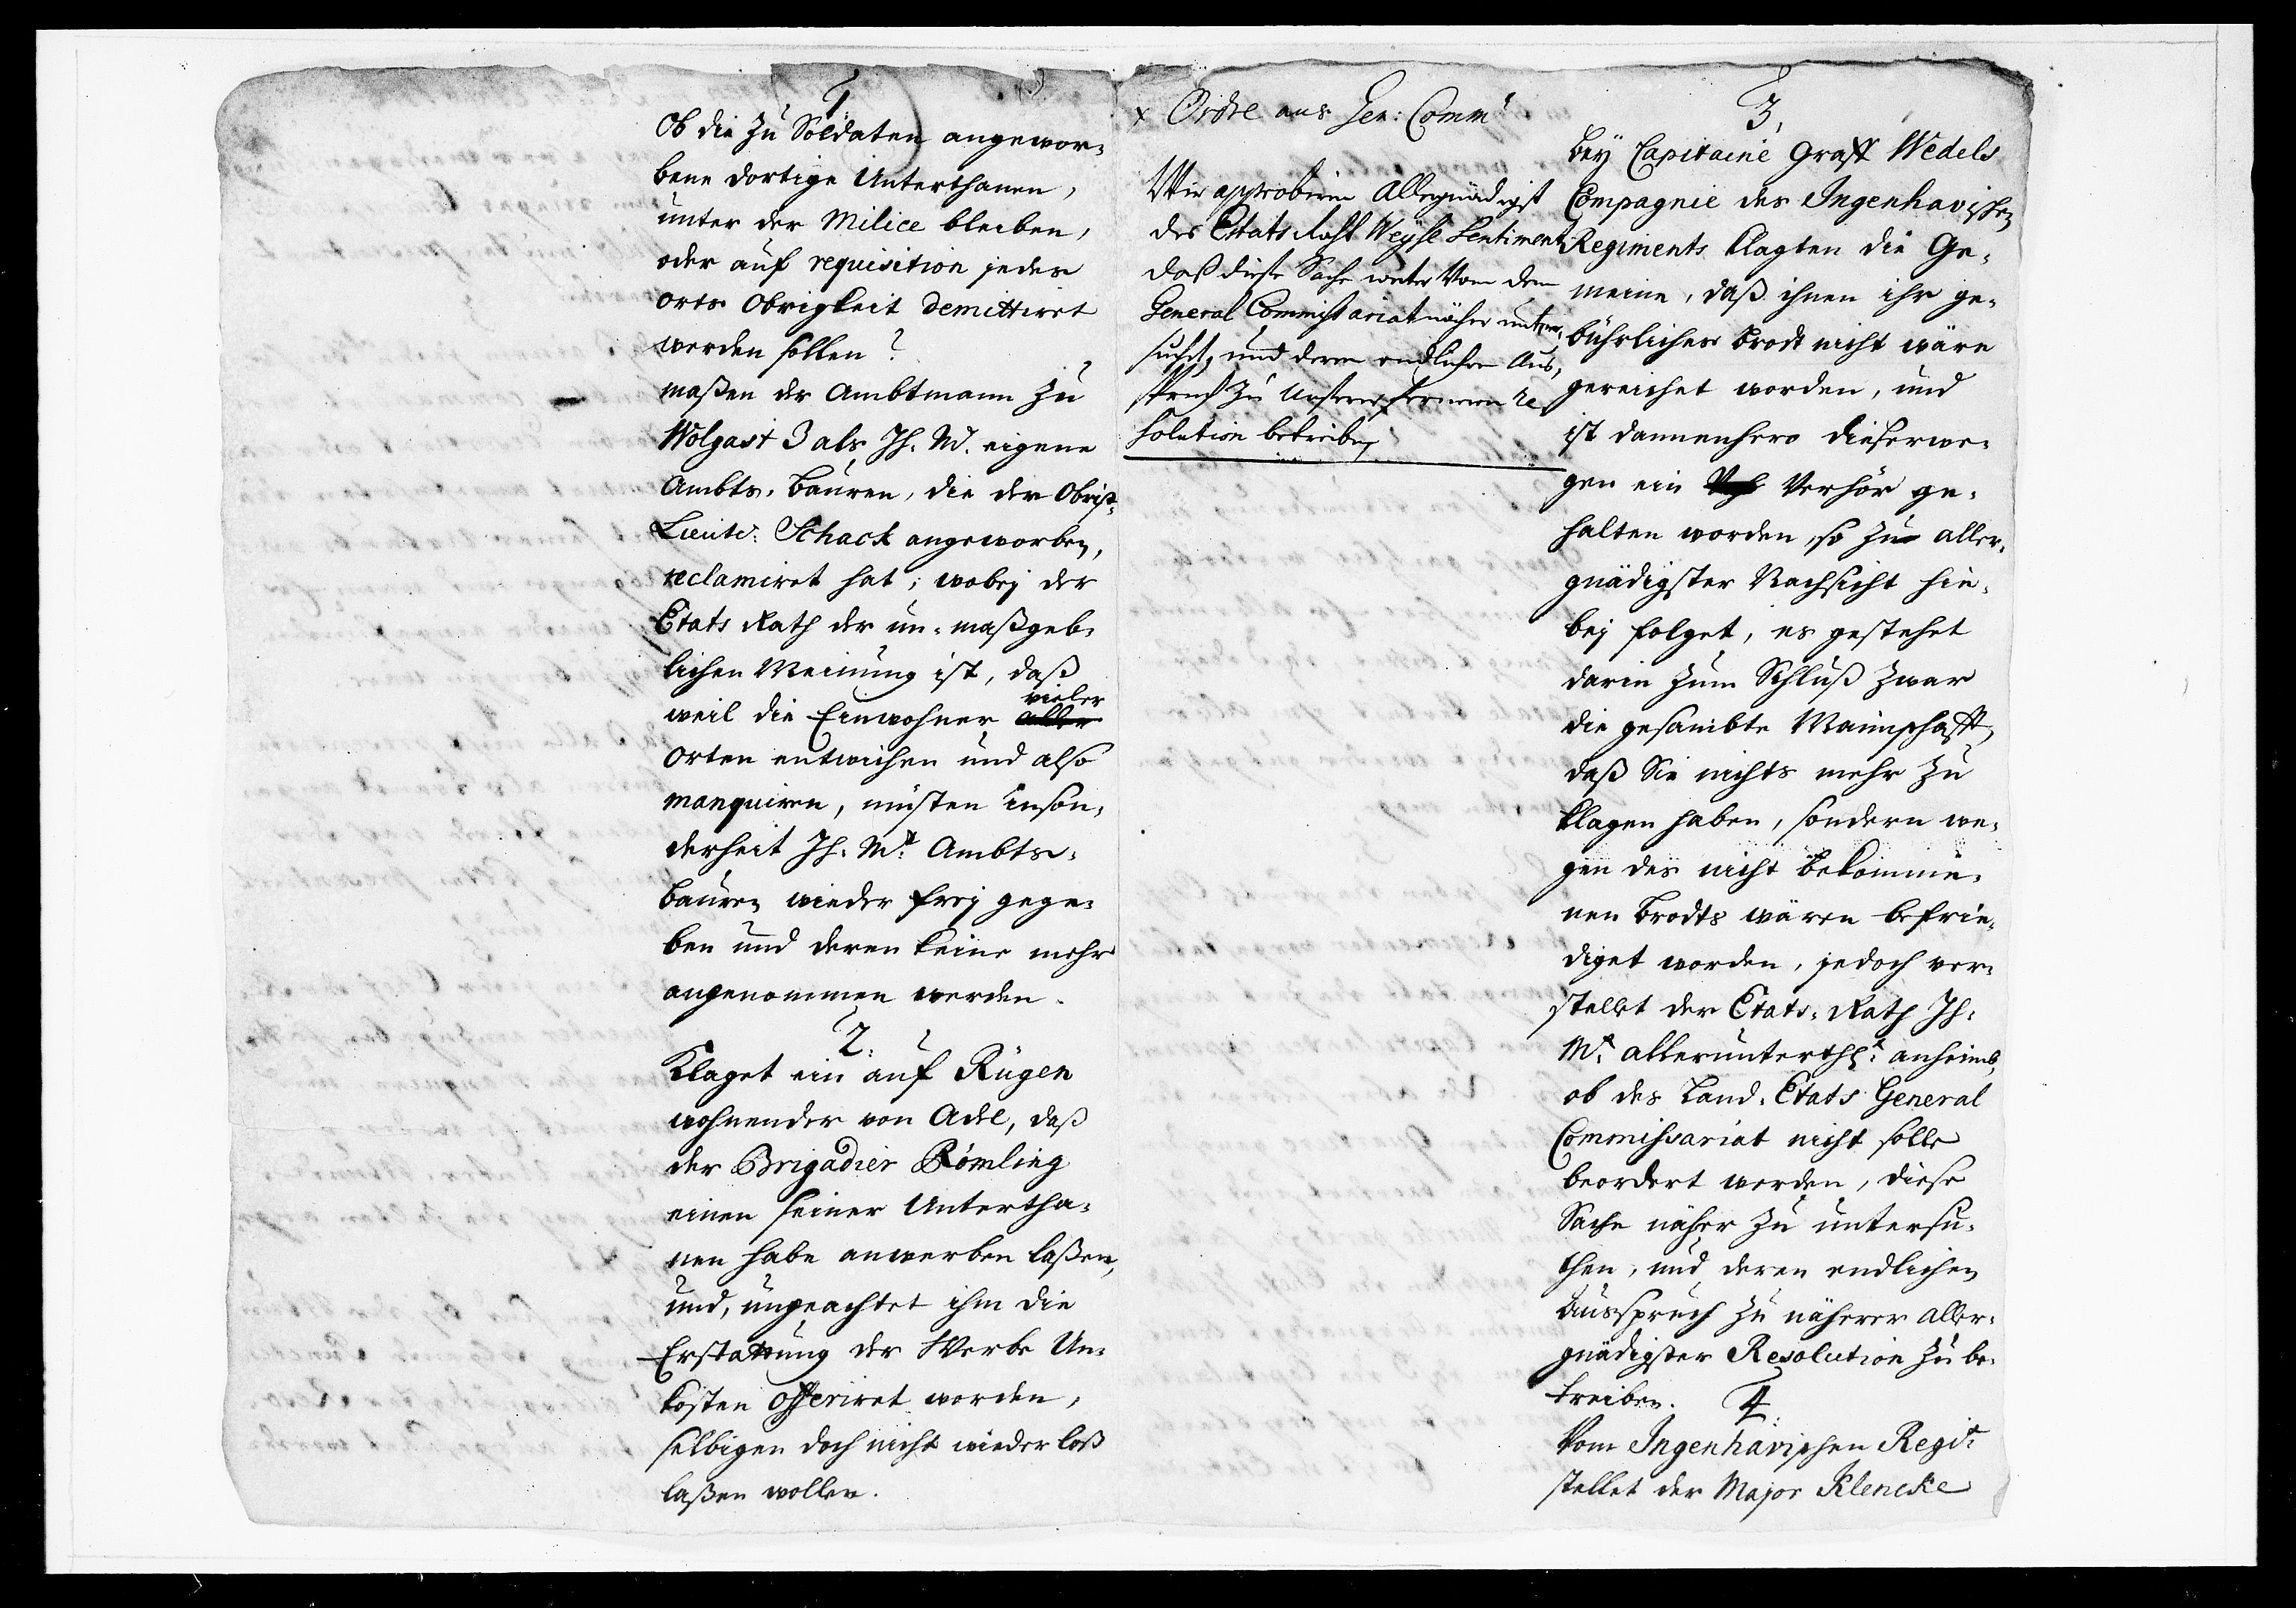 1.
Ob die zu Soldaten angewor-
bene dortige Unterthanen,
unter der Milice bleiben,
oder auf requisition jedes
orts Obrigkeit demittiret
werden sollen?
maßen der Ambtmann zu
Wolgast 3 als Ih. M. eigene
Ambts-Bauren, die der Obrist-
Lieut: Schack angeworben,
reclamiret hat; wobej der
Etats Rath der un-maßgeb-
lichen Meinung ist, daß
weil die Einwohner aller vieler
Orten entwichen und also
manquiren, müsten inson-
derheit Ih. Mt: Ambts-
bauren wieder frej gege-
ben und deren keine mehr
angenommen werden.
2.
Klaget ein auf Rügen
wohnender von Adel, daß
der Brigadier Römling
einen seiner Untertha-
nen habe anwerben laßen,
und, ungeachtet ihm die
Erstattung der Werbe Un-
kosten offeriret worden,
selbigen doch nicht wieder loß
laßen wollen.
x Ordre ans Gen: Comm
Wir approbiren Allergnädigst
des Etats Raht Weyse Sentiment
daß diese Sache weter von dem
General Commissariat näher unter-
sucht, und deren endlichen Aus-
spruch zu Unserer ferneren Re
solution betreiben
3.
bey Capitaine Graff Wedels
Compagnie des Ingenhavischen
Regiments klagten die Ge-
meine, daß ihnen ihr ge-
bührliches brodt nicht wäre
gereichet worden, und
ist dannenhero dieserwe-
gen ein Verhör ge-
halten worden, so zu aller-
gnädigster Nachsicht hie-
bej folget, es gestehet
darin zum Schluß zwar
die gesambte Mannschafft,
daß Sie nichts mehr zu
klagen haben, sondern we-
gen des nicht bekomme-
nen Brodts wären befrie-
diget worden, jedoch ver-
stellet der Etats-Rath Ih.
Mt. allerunterthgt. anheimb,
ob des Land-Etats General
Commissariat nicht solle
beordert werden, diese
Sache näher zu untersu-
chen, und deren endlichen
Ausspruch zu näherer aller-
gnädigster Resolution zu be-
treiben.
4.
Vom Ingenhavischen Regit:
stellet der Major Klencke